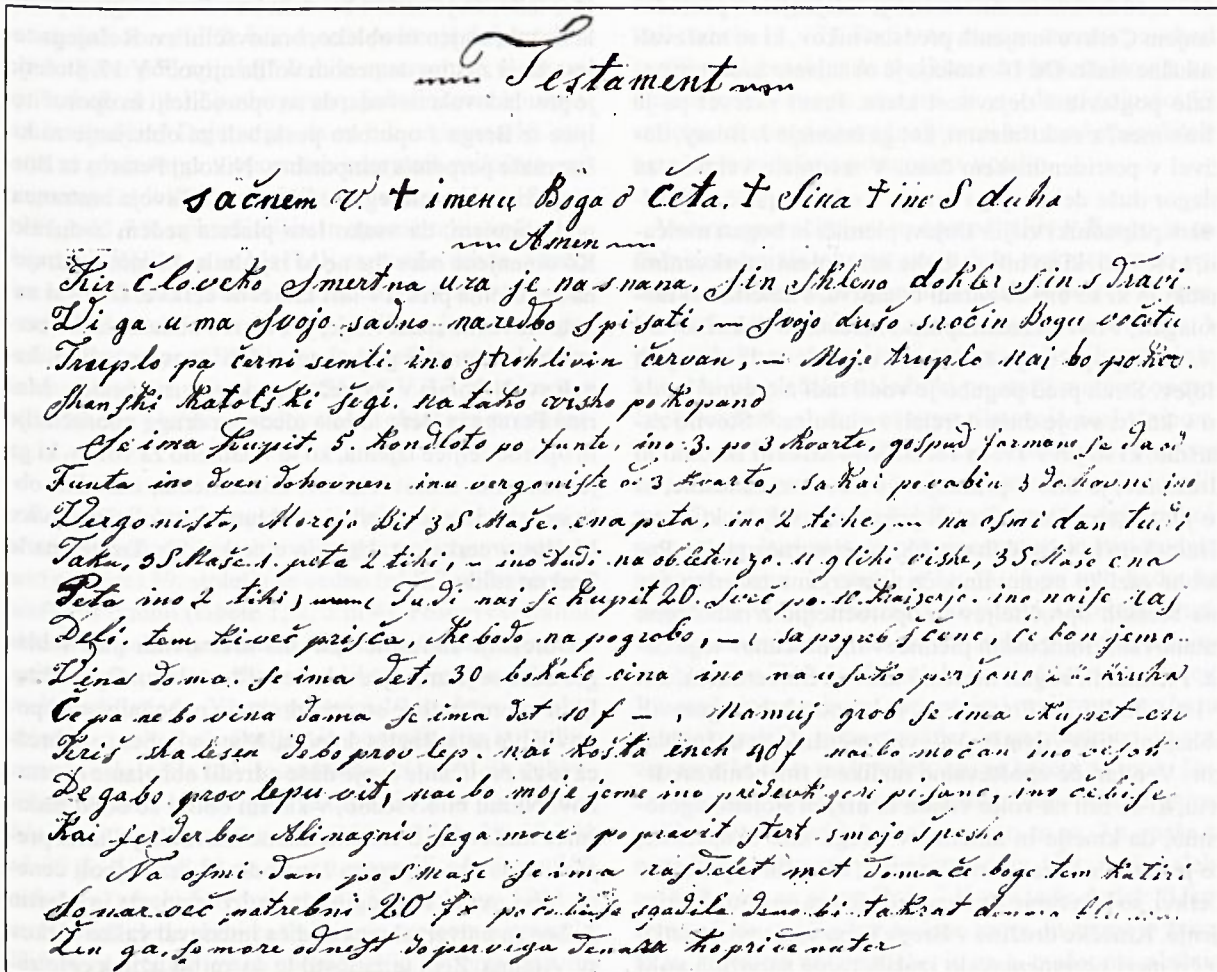 Testament
sačnem V. † imenu Boga o četa. † Sina † ino S duha
Amen
Kir človeko Smertna ura je nasnana, sin skleno dokler sin sdravi.
Di ga uma svojo sadno naredbo spisati — svojo dušo sročin Bogu večitu
Truplo pa černi semli ino strohlivin červan, — Moje truplo nai bo po kro.
Manski katolški šegi na tito vižo pokopano
Se ima kupit 5 kondloto po funte, ino 3 po 3 kvarte, gospud farmane sa da
Funta ino dven dohovnen inu vergoniste od 3 kvarto, sakai povabin 3 dohovne ino
Vergonista, Morejo bit 3 S Maše. ena peta ino 2 tihe, — na osmi dan tudi
Taku, 3 S Maše 1. peta 2 tihi, — ino tudi na obletenzo. u gliki viži, 3 S Maše ena
Peta ino 2 tihi, Tudi nai se kupit 20. sveč po 10 kraizerje. ino nai se
Deli. tem ki več prisča, ke bodo na pogrebo, — sa pogrebščene, če bon jemo
Vina doma. se ima det. 30 bokale vina ino na usako peršono kruha
Če pa ne bo vina doma se ima det 10 f — , Mamuj grob se ima kupet en
Kriš ke bo debo prov lep, nai košta ench 40 f
De ga bo prov lepu vit, nai bo moje jeme ino predevk gori pisano, ino če bi se
Kai sferderbov Alinagniv sega more po pravit sterl smojo špesho
Na osmi dan po S Maše se ima rasdelet met domače bogetem katiri
So nar več potrebni 20 f x pa če bi se sgodilo deno bi takrat
Zen ga se more odvzet is perviga dena sa kopričenater